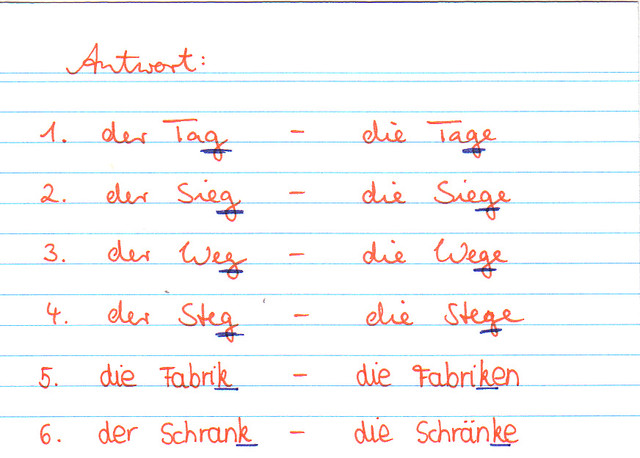 Antwort:
1. der Tag - die Tage
2. der Sieg - die Siege
3. der Weg - die Wege
4. der Steg - die Stege
5. die Fabrik - die Fabriken
6. der Schrank - die Schränke